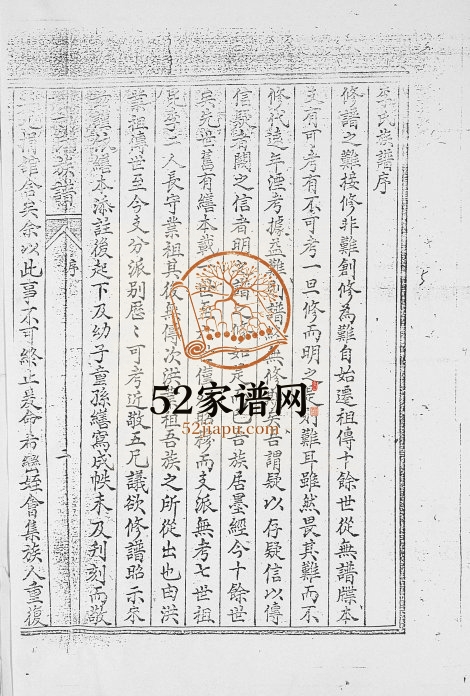 李氏族譜序
修譜之難接修非難創修為難自始遷祖傳十餘世從無譜牒本
支有可考有不可考一旦修而明之則難耳雖然畏其難而不
修代遠年湮考據益難則譜無修矣吾謂疑以存疑信以傳
信疑者闕之信者明之譜之修如是已吾族居墨經今十餘世
矣先世舊有繕本載世僅昭穆而支派無考七世祖
二人長守業祖其後無傳次洪業祖吾族之所從出也由洪
業祖傳世至今支分派別歷歷可考近敬五兄議欲修譜昭示來
繕本添註後起下及幼子童孫繕寫成帙未及刊刻而敬
捐館舍矣余以此事不可終止爰命希彎姪會集族人重復
族譜 序 二
52家谱网
52jiapu.com